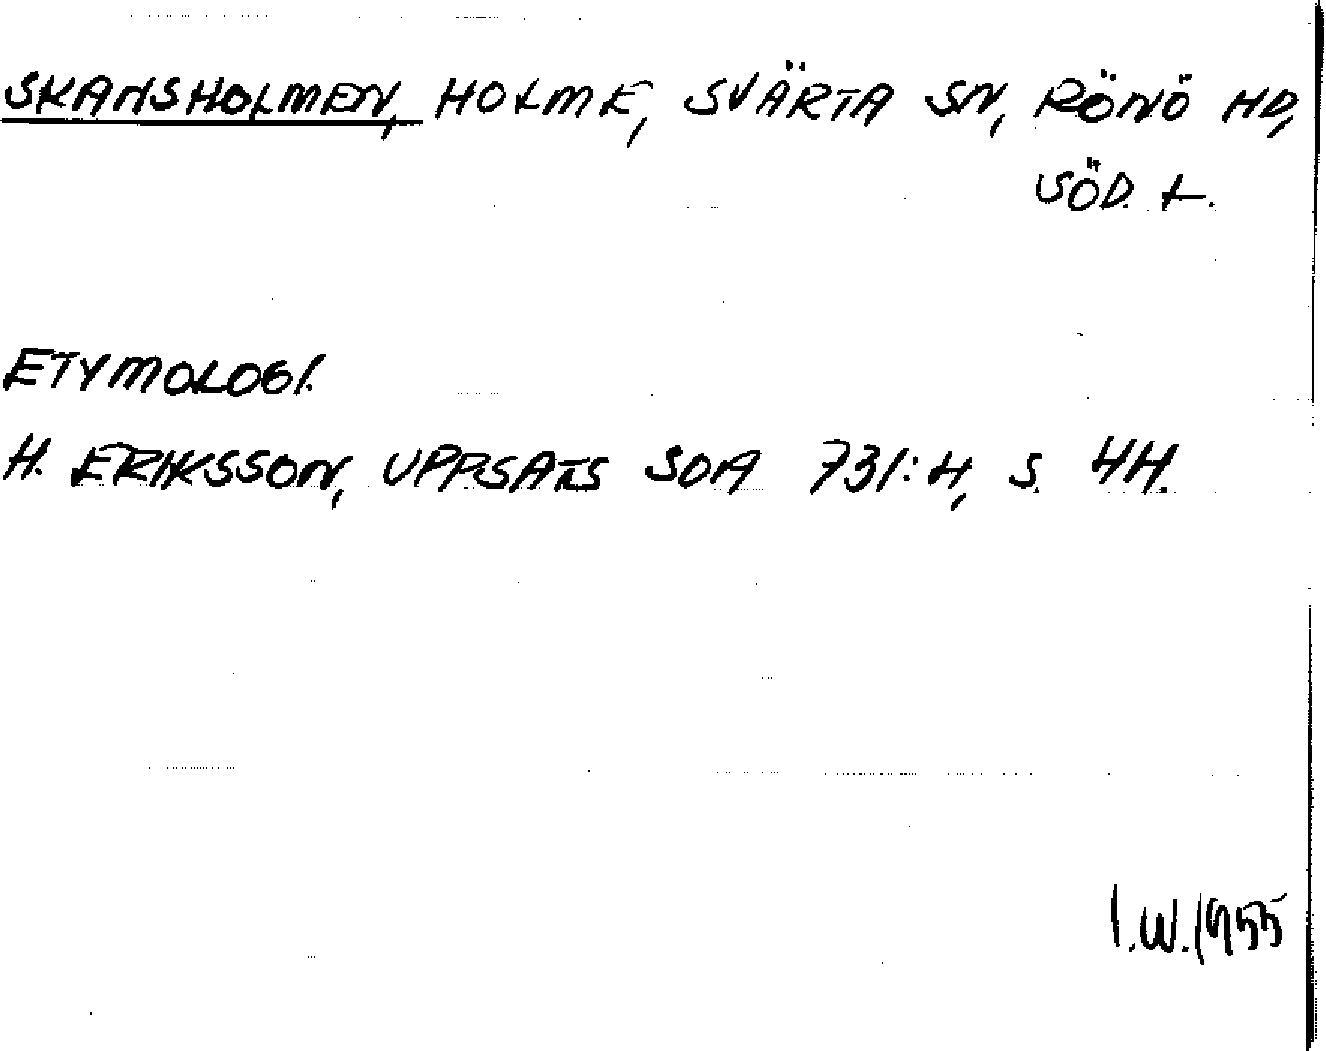 SKANSHOLMEN, HOLME, SVÄRTA SN, RÖNÖ HD,
SÖD. L.
ETYMOLOGI.
H. ERIKSSON, UPPSATS SOA 731:4, S. 44.
I.W. 1955